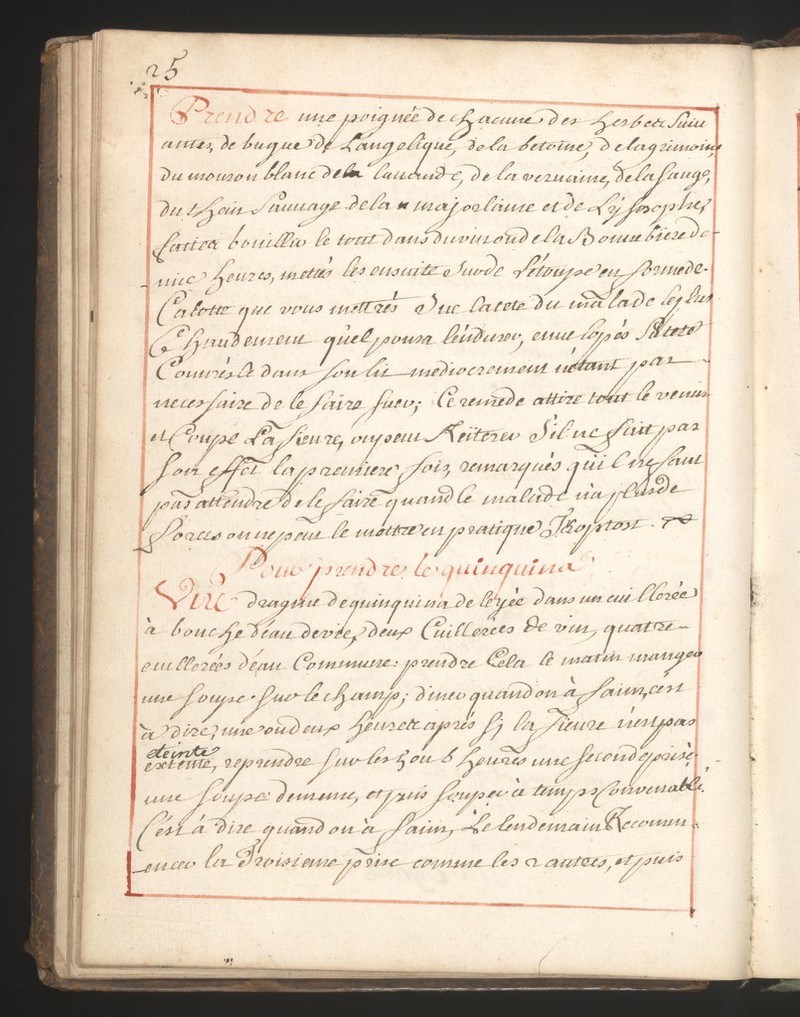 25
Prendre une poignée de chacune des herbete Suiu
antes, de bugue de Langelique, de la betoine, de lagrimoine
du mouron blanc dela lauande, de la veruaine, de la sauge,
du thein Sauuage de la marjorlaine et de
faites bouillir le tout dans du vin ou de la Bonne biere de-
-mie heures, mettés les ensuite Sur de Létoupe en forme de-
Calotte que vous mettrés Sur latete du malade le plus
Chaudement qu'el poura lendurer, enuelopés Satete
Couurés le dans son lit mediocrement nétant pas
necessaire de le faire suer; Ce remede attire tout le venin
et Coupe La fieure, on peut Reiterer S'il ne fait pas
son effet la premiere fois, remarqués qui l ne faut
pas attendre de le faire quand le malade n'a plus de
forces on ne peut le mettre en pratique Troptost.
Pour prendre le quinquina
Vne dragme de quinquina deleyée dans un cuillerée
à bouche d'eau devie, deux Cuillerées de vin, quattre-
cuillerées d'eau Commune: prendre Cela le matin manger
une soupe sur le champ; diner quand on à faim, cést
à dire, une ou deux heurett aprés sy la fieure n'est pas
eteinte
, reprendre sur les 4 ou 5 heures une seconde prise
une soupe de meme, et puis souper à temps Conuenable.
Cést á dire quand on à faim, Le lendemain Recomm-
-encer la Troisieme prise comme les 2 autres, et puis